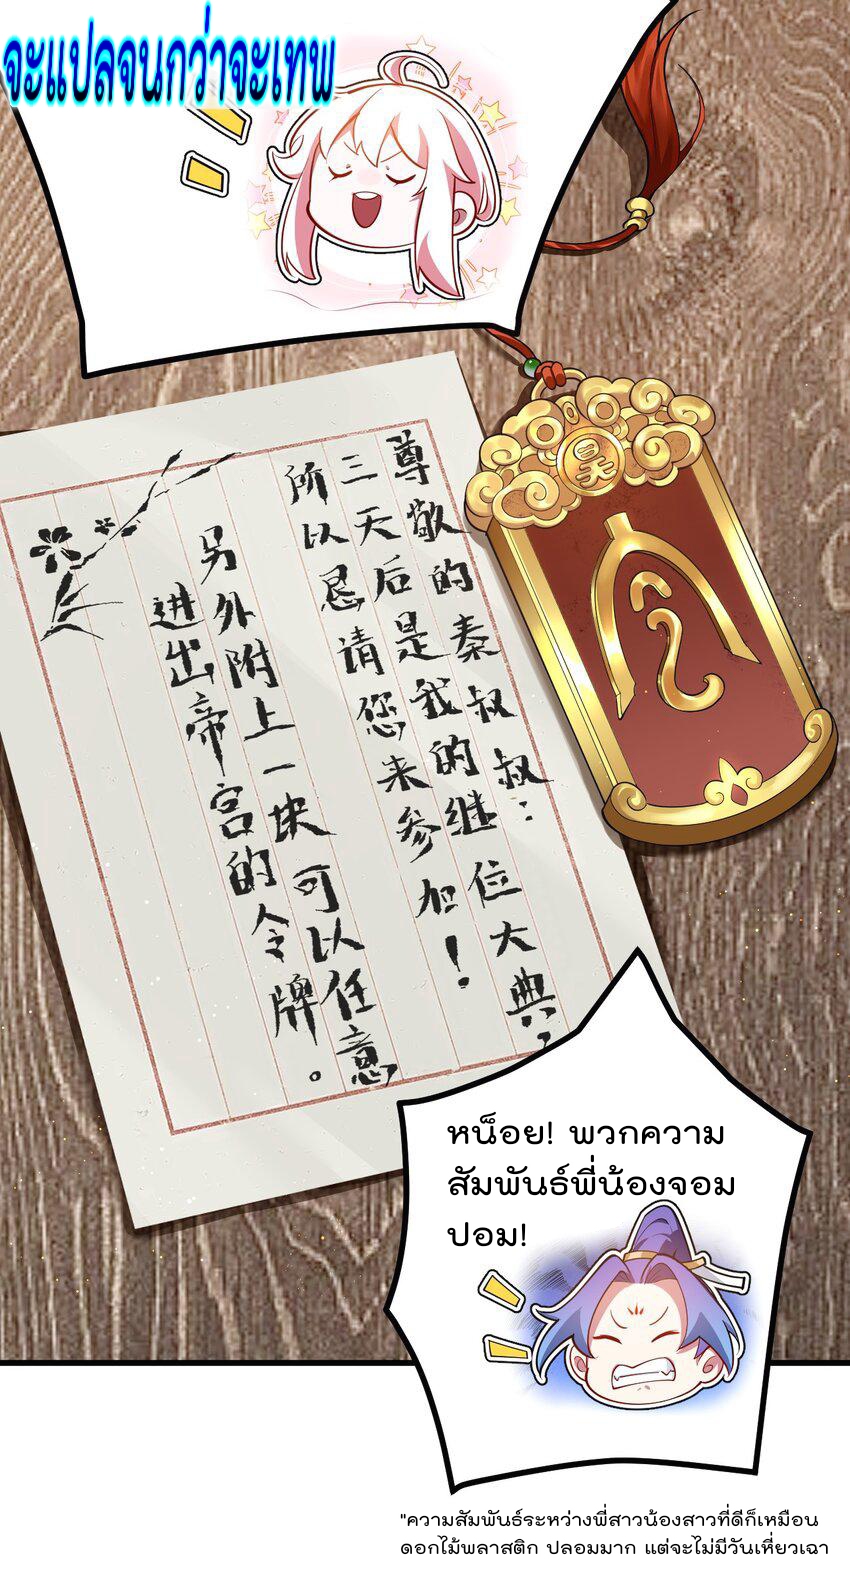 จะแปลจนกว่าจะเทพ
昊
尊敬的秦叔叔：
三天后是我的继位大典，
所以恳请您来参加！
另外附上一块可以任意
进出帝宫的令牌。
หน็อย! พวกความ
สัมพันธ์พี่น้องจอม
ปอม!
"ความสัมพันธ์ระหว่างพี่สาวน้องสาวที่ดีก็เหมือน
ดอกไม้พลาสติก ปลอมมาก แต่จะไม่มีวันเหี่ยวเฉา